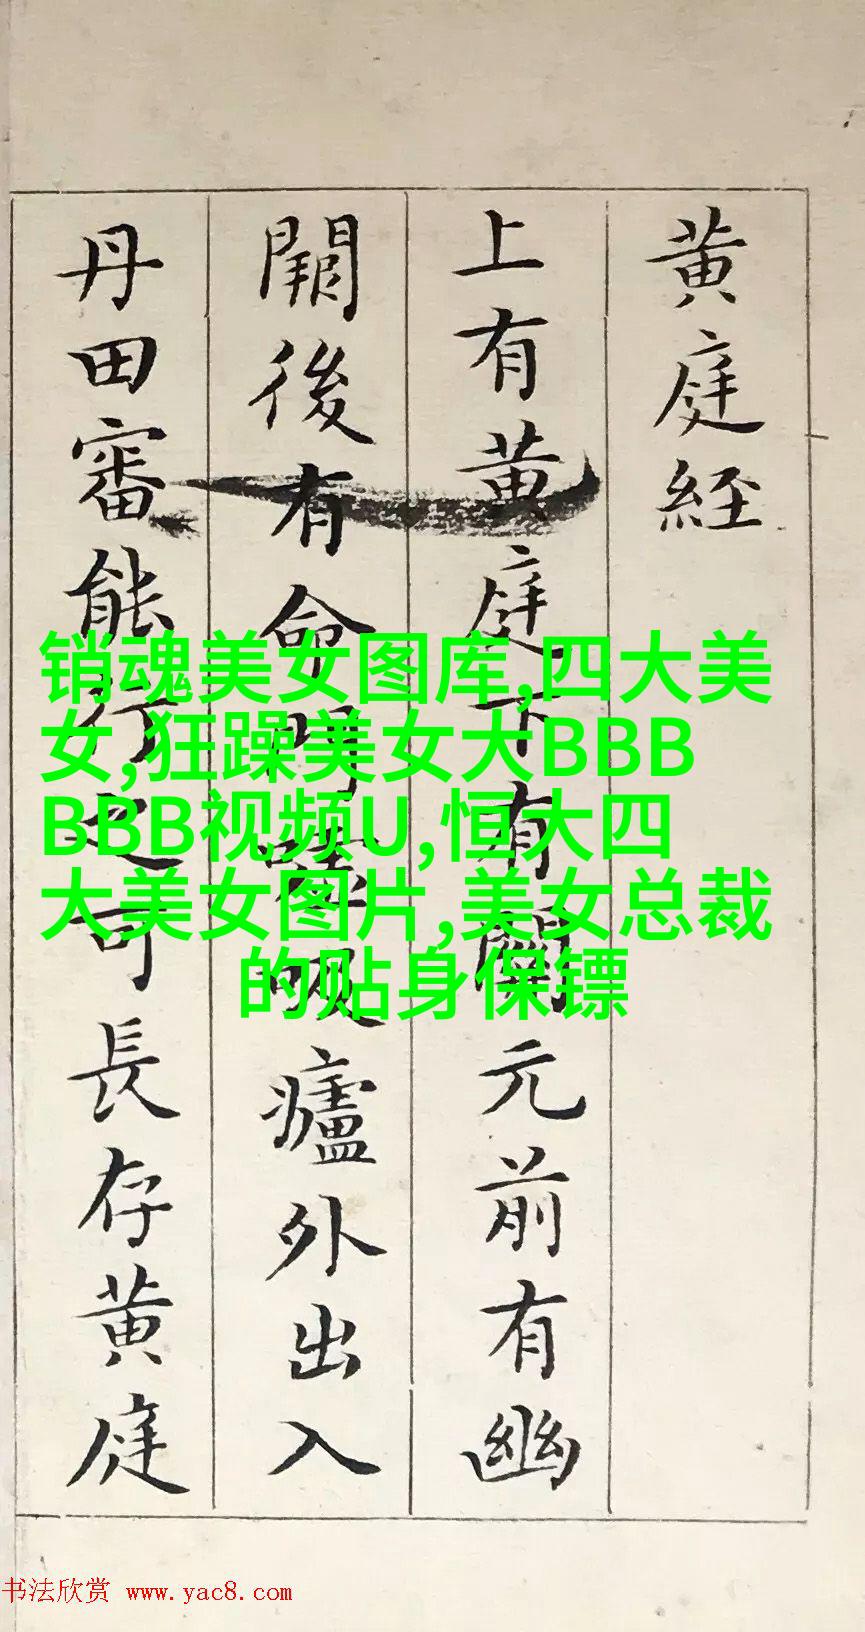 黄庭經
上有黄庭下有關元前有幽
闕後有命門噓吸廬外出入
丹田審能行之可長存黄庭
销魂美女图库,四大美
女,狂躁美女大BBB
BBB视频U,恒大四
大美女图片,美女总裁
的贴身保镖
书法欣赏 www.yac8.com